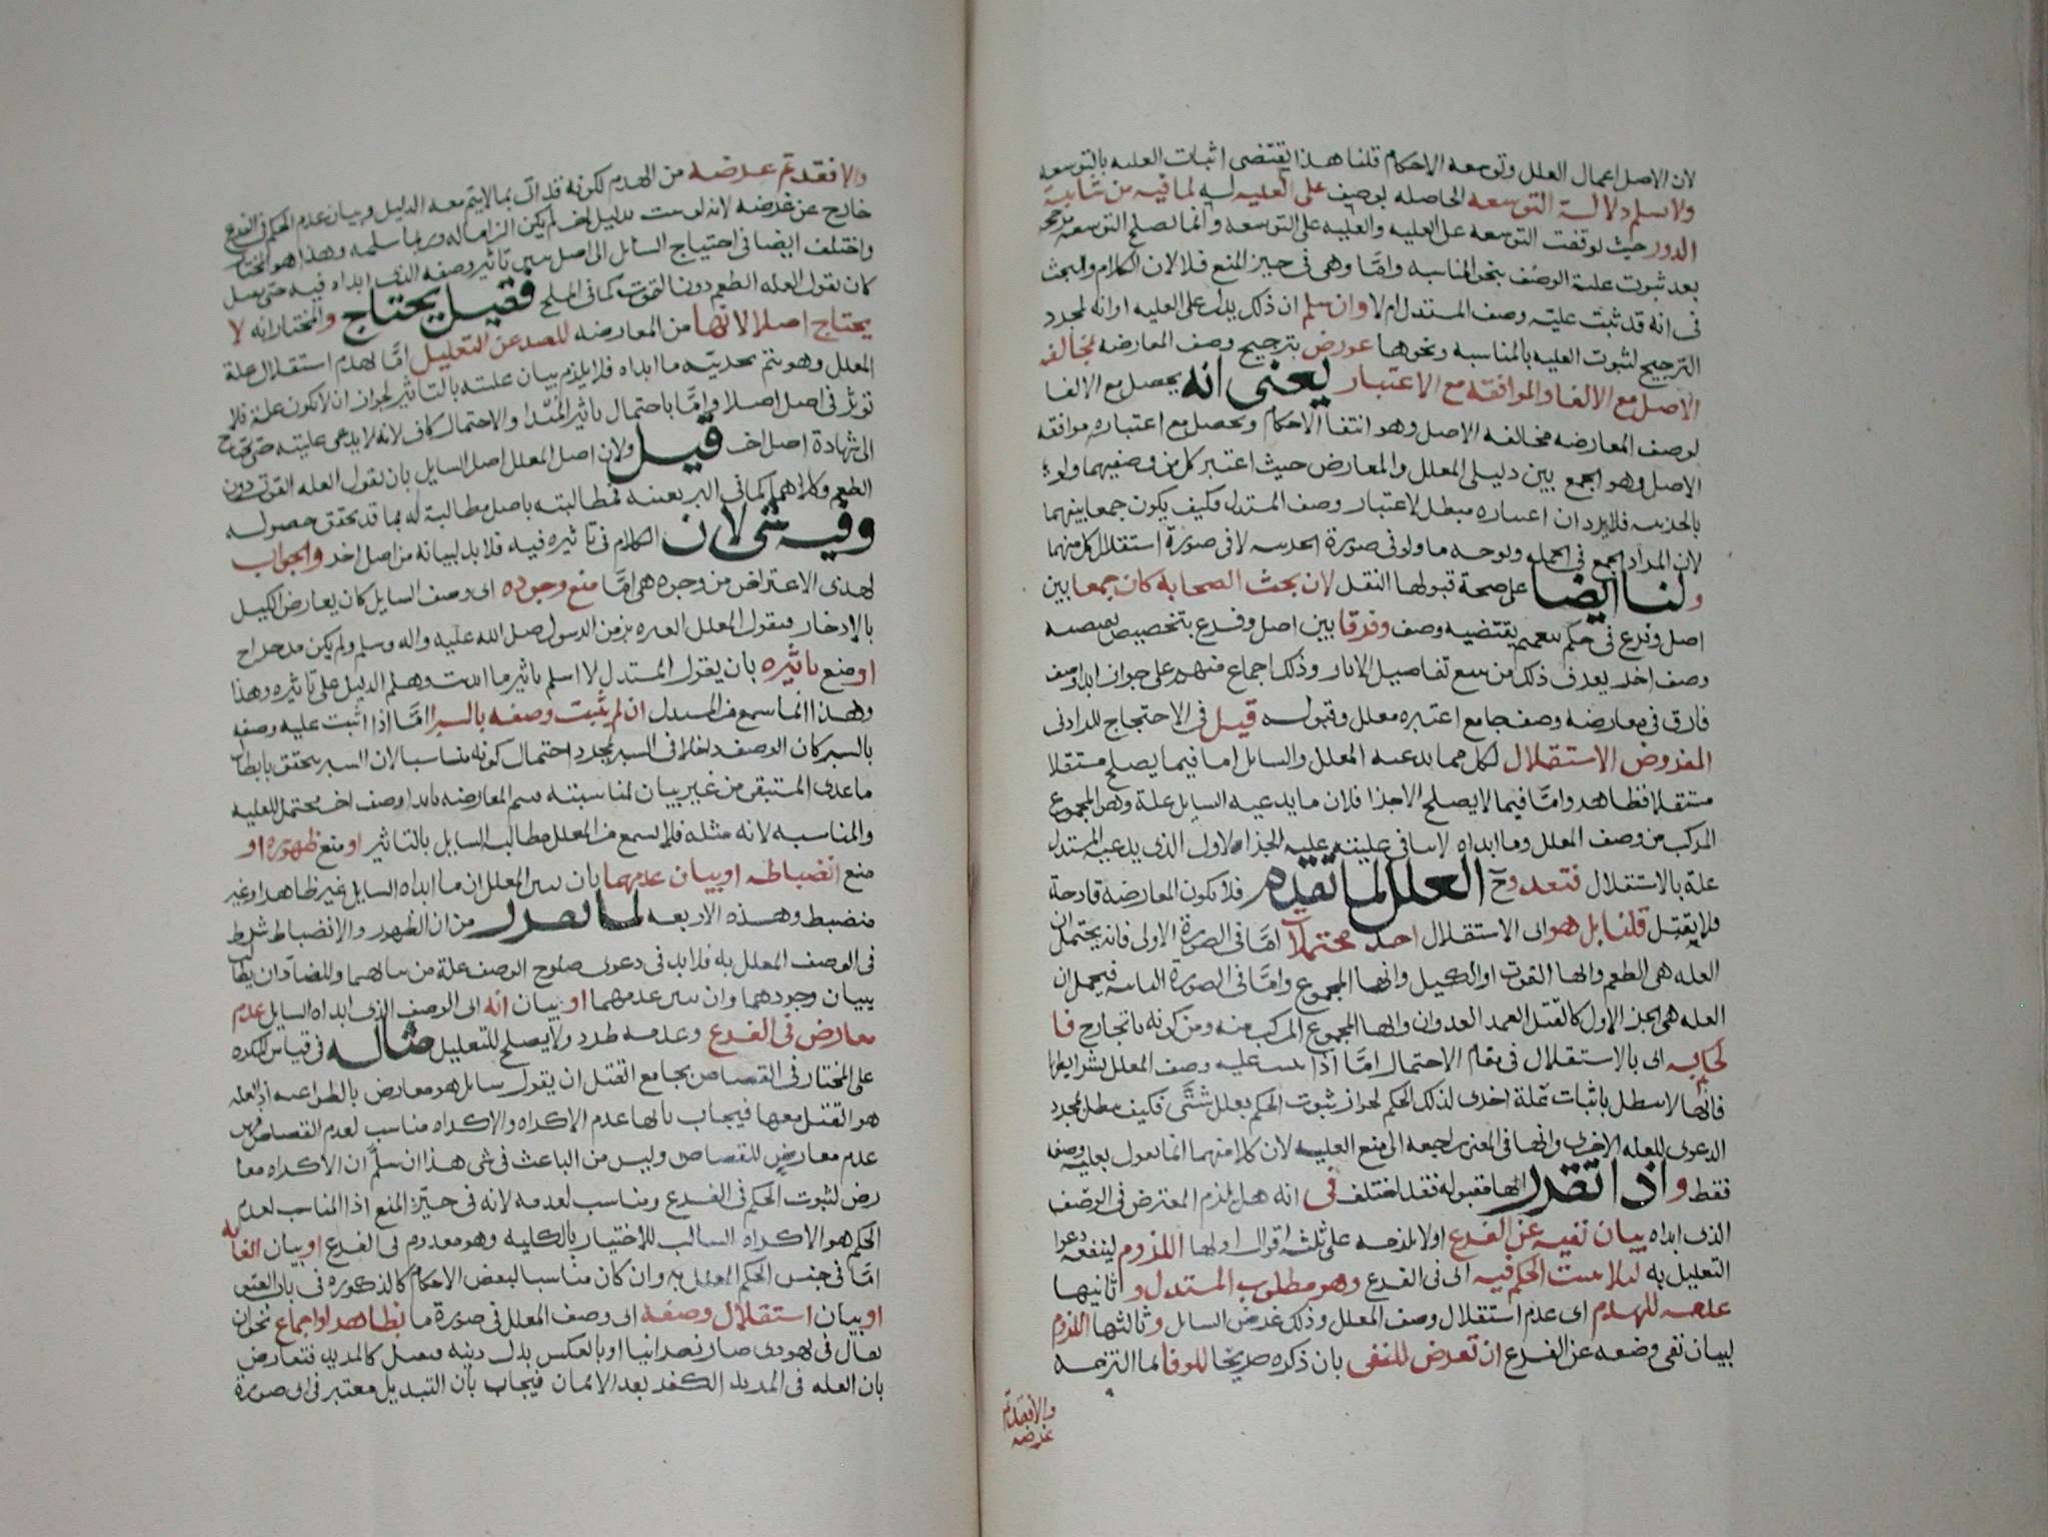 لان الاصل اعمال العلل وتوسعه الاحكام قلنا هذا يقتضى اثبات العليه بالتوسعه
ولا سلم دلالة التوسعه الحاصله بوصف على العليه ليه لما فيه من شايبة
الدور حيث توقفت التوسعه على العليه والعليه على التوسعه وانما تصلح التوسعه مرجحه
بعد ثبوت علية الوصف بنحو المناسبه وامّا وهى فى حيز المنع فلا لان الكلام والبحث
فى انه قد ثبت عليّه وصف المستدل ام لا وان سلم ان ذلك يدل على العليه او انه لمجرد
الترجيح لثبوت العليه بالمناسبه ونحوها عورض بترجيح وصف المعارضه بمخالفه
الاصل مع الالغا والموافقه مع الاعتبار يعنى انه يحصل مع الالغا
لوصف المعارضه مخالفه الاصل وهو انتفا الاحكام وتحصل مع اعتباره موافقه
الاصل وهو الجمع بين دليلى المعلل والمعارض حيث اعتبر كل من وصفيهما ولو
بالجزييه فلا يرد ان اعتباره مبطل لاعتبار وصف المستدل فكيف يكون جمعا بينهما
لان المراد الجمع فى الجمله ولوجه ما ولو فى صورة الجزييه لا فى صورة استقلال كل منهما
ولنا ايضا على صحة قبولها النقل لان بحث الصحابه كان جمعا بين
اصل وفرع فى حكم بتعميم يقتضيه وصف وفرقا بين اصل وفرع بتخصيص يقتضيه
وصف اخر يعرف ذلك من تتبع تفاصيل الاثار وذلك اجماع منهم على جواز ابدا وصف
فارق فى معارضه وصف جامع اعتبره معلل وقبوله قيل فى الاحتجاج للرادنى
المفروض الاستقلال لكل مما يدعيه المعلل والسايل اما فيما يصلح مستقلا
مستقلا فظاهر وامّا فيما لا يصلح الا جزا فلان ما يدعيه السايل علة وهو المجموع
المركب من وصف المعلل وما ابداه لا ينافى علييته عليه الجزا الاول الذى يدعيه المستدل
علة بالاستقلال فتعدد وح العلل لما تقدم فلا تكون المعارضه قادحة
فلا يقبل قلنا بل هو اى الاستقلال احد محتملات امّا فى الصورة الاولى فانه يحتمل ان
العله هى الطعم وانها القوت او الكيل وانها المجموع وامّا فى الصورة الثانيه فيحتمل ان
العله هى الجز الاول كالقتل العمد العدوان وانها المجموع المركب منه ومن كونه بالجارح فا
لحكم به اى بالاستقلال فى مقام الاحتمال تحكم امّا اذا ثبت عليه وصف المعلل بشرايطها
فانها لا تبطل باثبات علة اخرى لذلك الحكم لجواز ثبوت الحكم بعلل شتّى فكيف تبطل بمجرد
الدعوى للعله الاخرى وانها فى المعنى راجعه الى منع العليه لان كلا منهما انما يقول بعلية وصفه
فقط واذا تقرر انها مقبوله فقد اختلف فى انه هل يلزم المعترض فى الوصف
الذى ابداه بيان نفيه عن الفرع اولا يلزمه على ثلثه اقوال اولها اللزوم لينفعه دعوا
التعليل به ليلا يثبت الحكم فيه اى فى الفرع وهو مطلوب المستدل و ثانيها
عدمه للهدم اى عدم استقلال وصف المعلل وذلك غرض السايل وثالثها اللزوم
لبيان نفى وصفه عن الفرع ان تعرض للنفى بان ذكره صريحا للوفا لما التزمه
والا فقد تم
غرضه
والا فقد تم غرضه من الهدم لكونه قد اتى بما لا يتم معه الدليل وبيان عدم الحكم فى الفرع
خارج عن غرضه لانه لو ثبت بدليل اخر لم يكن الزاما له وربما سلمه وهذا هو المختار
واختلف ايضا فى احتياج السايل الى اصل يبين تاثير وصفه الذى ابداه فيه حتى يقبل
كان يقول العله الطعم دون القوت كما فى الملح فقيل يحتاج والمختار انه لا
يحتاج اصلا لانها من المعارضه للصد عن التعليل امّا لهدم استقلال علة
المعلل وهو يتم بجزئيّه ما ابداه فلا يلزم بيان عليته بالتاثير لجواز ان لا تكون علة فلا
توثر فى اصل اصلا وامّا باحتمال تاثير المُبْدا والاحتمال كاف لانه لا يدعى عليته حتى يحتاج
الى شهادة اصل اخر قيل ولان اصل المعلل اصل السايل بان يقول العله القوت دون
الطعم وكلاهما كما فى البر بعينه فمطالبته باصل مطالبة له بما قد تحقق حصوله
وفيه شى لان الكلام فى تاثيره فيه فلا بد لبيانه من اصل اخر والجواب
لهذى الاعتراض من وجوه هى امّا منع وجوده اى وصف السايل كان يعارض الكيل
بالادخار فيقول المعلل العبره بزمن الرسول صلى الله عليه واله وسلم ولم يكن مدخرا ح
او منع تاثيره بان يقول المستدل لا اسلم تاثير ما ابديت وهلم الدليل على تاثيره وهذا
وهذا انما يسمع من المستدل ان لم يثبت وصفه بالسبر امّا اذا اثبت عليه وصفه
بالسبر كان الوصف داخلا فى السبر لمجرد احتمال كونه مناسبا لان السبر يتحقق بابطال
ما عدى المستبقى من غير بيان لمناسبته فتتم المعارضه بابدا وصف اخر محتمل للعليه
والمناسبه لانه مثله فلا يسمع من المعلل مطالبه السايل بالتاثير او منع ظهوره او
منع انضباطه او بيان عدمهما بان يبين المعلل ان ما ابداه السايل غير ظاهر او غير
منضبط وهذه الاربعه لما تقرر من ان الظهور والانضباط شرط
فى الوصف المعلل به فلا بد فى دعوى صلوح الوصف علة من بيانهما وللصاد ان يطالب
ببيان وجودهما وان يبين عدمهما او ببيان انه اى الوصف الذى ابداه السايل عدم
معارض فى الفرع وعدمه طرد ولا يصلح للتعليل مثاله فى قياس المكره
على المختار فى القصاص بجامع القتل ان يقول سايل هو معارض بالطواعيه اذ العله
هو القتل معها فيجاب بانها عدم الاكراه والاكراه مناسب لعدم القصاص فهى
عدم معارض للقصاص وليس من الباعث فى شى هذا ان سلم ان الاكراه معا
رض لثبوت الحكم فى الفرع ومناسب لعدمه لانه فى حيّز المنع اذ المناسب لعدم
الحكم هو الاكراه السالب للاختيار بالكليه وهو معدوم فى الفرع او بيان الغايه
امّا فى جنس الحكم المعلل به وان كان مناسبا لبعض الاحكام كالذكوره فى باب العتق
او بيان استقلال وصفه اى وصف المعلل فى صورة ما بظاهر او اجماع نحو ان
يقال فى يهودى صار نصرانيا او بالعكس بدل دينه فيقتل كالمرتد فتعارض
بان العله فى المرتد الكفر بعد الايمان فيجاب بان التبديل معتبر فى اى صورة